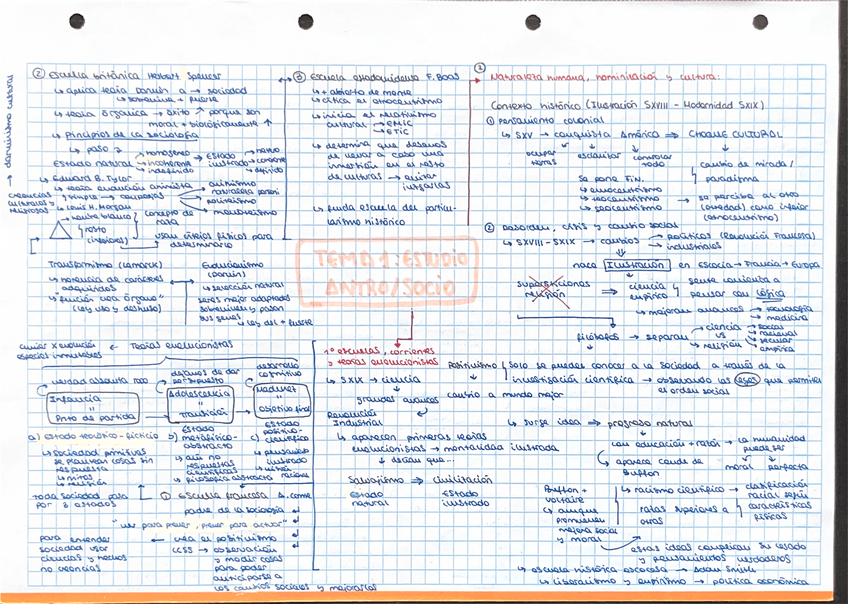 ② Escuela británica Herbert Spencer
↳ aplica teoría Darwin a → sociedad
↳ sobrevive + fuerte
↳ teoría orgánica → éxito ↗ porque son
moral + biológicamente ↑
↳ principios de la sociología
↳ paso
homogéneo
incoherente
indefinido
Estado natural
→ Estado ilustrado
hetero
coherente
definido
↳ Edward B. Tylor
↳ teoría evolución animista
↳ simple → complejas
animismo
naturaleza
politeísmo
monoteísmo
creencias
culturales y
religiosas
↳ Louis H. Morgan
hombre blanco
resto
(inferiores)
concepto de
raza
usan rasgos físicos para
determinarlo
→ darwinismo cultural
Transformismo (Lamarck)
↳ herencia de caracteres
adquiridos
↳ "función crea órgano"
(ley uso y desuso)
Evolucionismo
(Darwin)
↳ selección natural
seres mejor adaptados
sobreviven y pasan
sus genes
↳ ley del + fuerte
③ Escuela estadounidense F. Boas
↳ + abierto de mente
↳ critica el etnocentrismo
↳ inicia el relativismo
cultural → EMIC
→ ETIC
↳ determina que debemos
de llevar a cabo una
inmersión en el resto
de culturas → evitar
juzgarlas
↳ funda escuela del particu-
larismo histórico
TEMA 1: ESTUDIO
ANTRO/SOCIO
①
Naturaleza humana, nominación y cultura:
Contexto histórico (Ilustración SXVIII - Modernidad SXIX)
① pensamiento colonial
↳ SXV → conquista América ⇒ CHOQUE CULTURAL
ocupar
tierras
esclavizar
controlar
todo
cambio de mirada/
paradigma
Se pone FIN.
↳ eurocentrismo
↳ teocentrismo
↳ geocentrismo
→ se percibe al otro
(otredad) como inferior
(etnocentrismo)
② Desorden, crisis y cambio social
↳ SXVIII - SXIX → cambios
→ políticos (Revolución Francesa)
→ industriales
nace Ilustración en Escocia → Francia → Europa
supersticiones
religión
⇒ ciencia
empírico
gente comienza a
pensar con lógica
↳ mejoran avances
→ tecnología
→ medicina
filósofos → separan
→ ciencia
vs
→ religión
social
racional
secular
empírica
1º escuelas, corrientes
y teorías evolucionistas
↳ SXIX → ciencia
grandes avances
cambio a mundo mejor
Revolución
Industrial
↳ aparecen primeras teorías
evolucionistas → mentalidad ilustrada
↳ decían que...
Salvajismo ⇒ civilización
Estado
natural
Estado
ilustrado
Positivismo
Solo se puedes conocer a la sociedad a través de la
investigación científica → observando las leyes que permiten
el orden social
↳ surge idea ⇒ progreso natural
con educación + razón → la humanidad
puede ser
moral
perfecta
↳ aparece conde de
Buffon
Buffon +
Voltaire
↳ aunque
promueven
mejora social
y moral
↳ racismo científico → clasificación
racial según
características
físicas
razas superiores a
otras
estas ideas complican su legado
y pensamientos verdaderos
↳ escuela histórica escocesa → Adam Smith
↳ liberalismo y empirismo → política económica
← Teorías evolucionistas
especies inmutables
verdad absoluta TODO
dejamos de dar
por supuesto
desarrollo
cognitivo
Infancia
"
Pnto de partida
Adolescencia
"
Transición
Madurez
"
objetivo final
a) Estado teológico-ficticio
↳ sociedad primitivas
se plantean cosas sin
respuesta
↳ mitos
↳ religión
b) estado
metafísico-
abstracto
↳ aún no
respuestas
científicas
↳ filosofía abstracta
c) estado
positivo-
científico
↳ pensamiento
ilustrado
racional
toda sociedad pasa
por 3 estados
① Escuela francesa A. Comte
padre de la sociología
"ver para prever, prever para actuar"
crea el positivismo
para entender
sociedad usar
ciencias y hechos
no creencias
CCSS → observación
y medir cosas
para poder
anticiparse a
los cambios sociales y mejorarlos